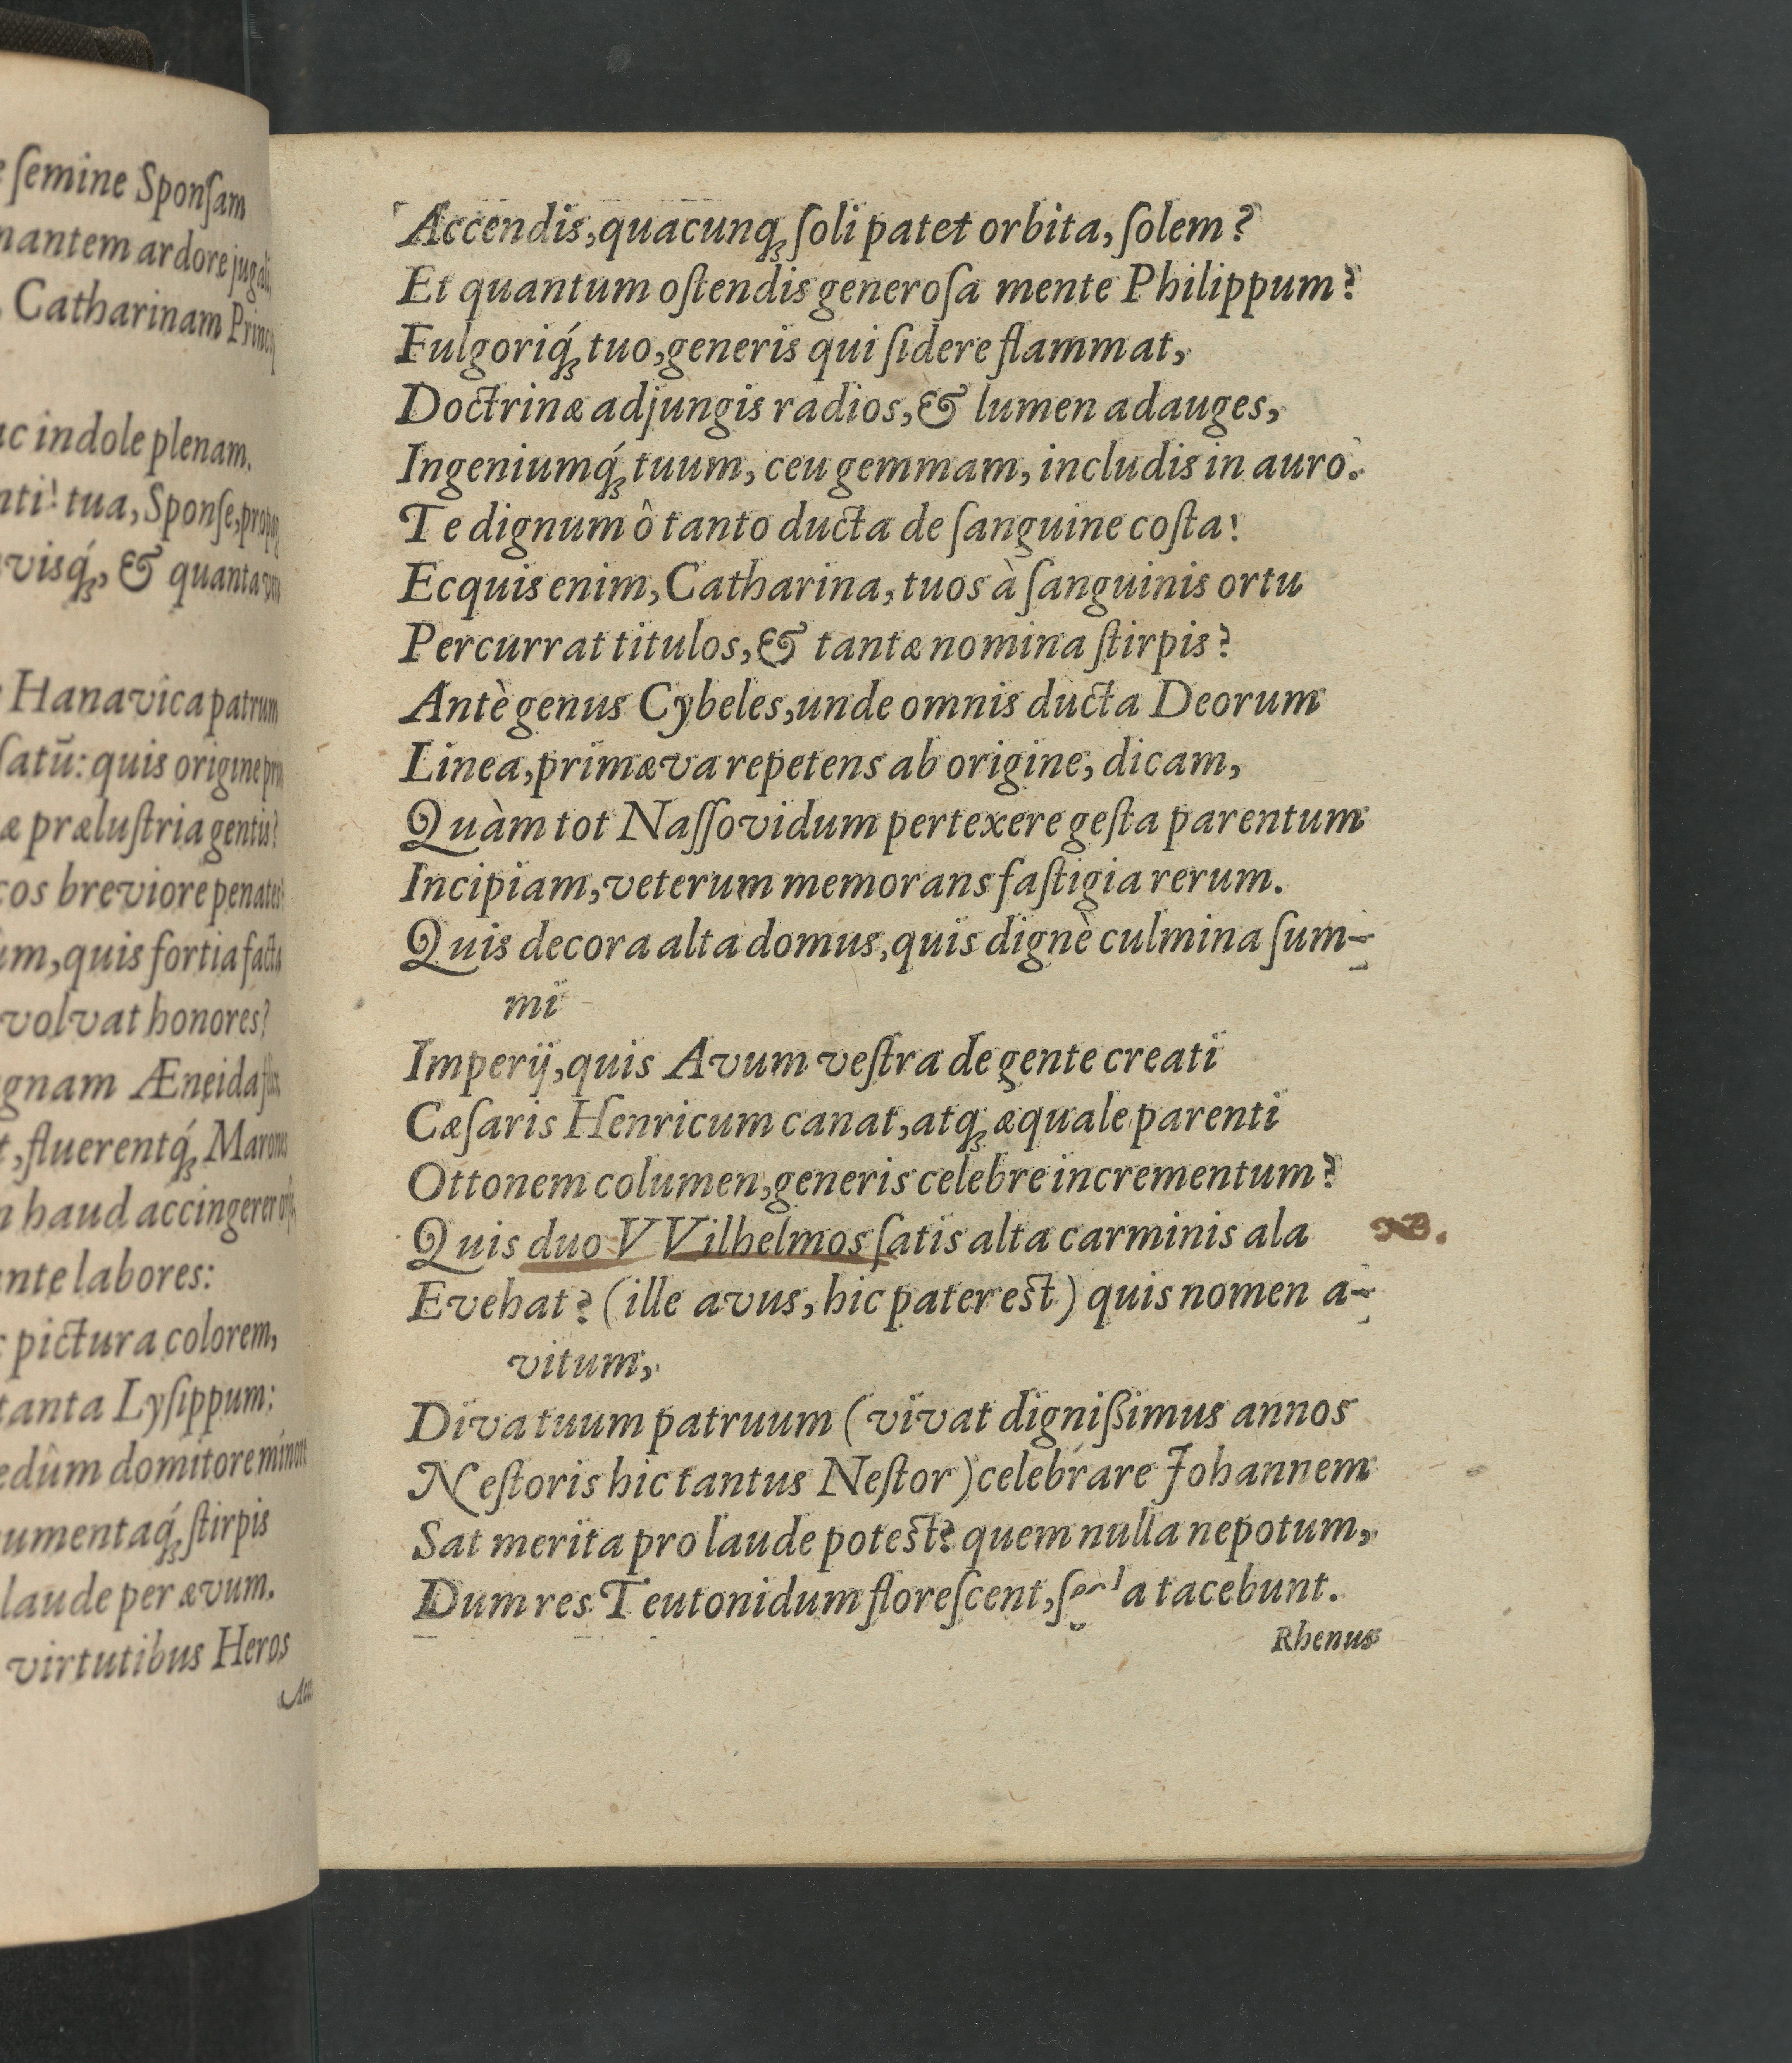 ſemine Sponſam
mantem ardore jugali,
Catharinam
ac indole plenam.
tua, Sponſe,
& quanta
Hanavica patrum
ſatū: quis origine
præluſtria gentis?
breviore penates?
quis fortia facta
volvat honores?
Æneida
fluerentq́ꝫ
haud accingerer
labores:
pictura colorem,
tanta Lyſippum:
domitore
ſtirpis
laude per ævum.
virtutibus Heros
Accendis, quacunqꝫ ſoli patet orbita, ſolem?
Et quantum oſtendis generoſa mente Philippum?
Fulgoriq́ꝫ tuo, generis qui ſidere flammat,
Doctrinæ adjungis radios, & lumen adauges,
Ingeniumq́ꝫ tuum, ceu gemmam, includis in auro.
Te dignum ô tanto ducta de ſanguine coſta!
Ecquis enim, Catharina, tuos à ſanguinis ortu
Percurrat titulos, & tantæ nomina ſtirpis?
Antè genus Cybeles, unde omnis ducta Deorum
Linea, primæva repetens ab origine, dicam,
Quàm tot Naſſovidum pertexere geſta parentum
Incipiam, veterum memorans faſtigia rerum.
Quis decora alta domus, quis dignè culmina ſum-
mi
Imperij, quis Avum veſtra de gente creati
Cæſaris Henricum canat, atqꝫ æquale parenti
Ottonem columen, generis celebre incrementum?
Quis duo VVilhelmos ſatis alta carminis ala NB.
Evehat? (ille avus, hic pater est) quis nomen a-
vitum,
Diva tuum patruum (vivat dignißimus annos
Neſtoris hic tantus Neſtor) celebrare Johannem
Sat merita pro laude potest? quem nulla nepotum,
Dum res Teutonidum floreſcent, tacebunt.
Rhenus